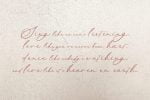 Sing like no one's listening,
love like you've never been hurt,
dance like nobody's watching
and live like it's heaven on earth.